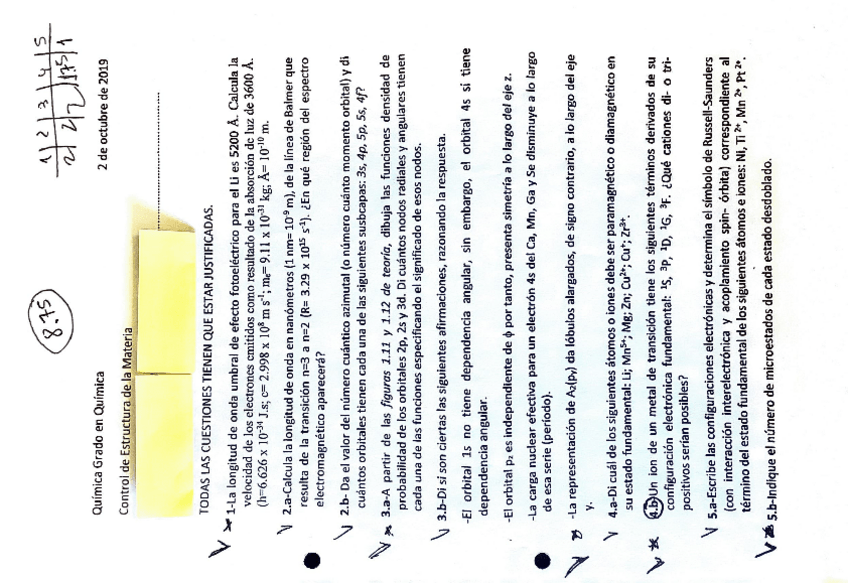 1 | 2 | 3 | 4 | 5
2 | 2 | 2 | 1'75 | 1
8.75
Química Grado en Química
2 de octubre de 2019
Control de Estructura de la Materia
TODAS LAS CUESTIONES TIENEN QUE ESTAR JUSTIFICADAS.
1-La longitud de onda umbral de efecto fotoeléctrico para el Li es 5200 Å. Calcula la
velocidad de los electrones emitidos como resultado de la absorción de luz de 3600 Å.
(h=6.626 x 10⁻³⁴ J.s; c= 2.998 x 10⁸ m s⁻¹; mₑ= 9.11 x 10⁻³¹ kg; Å= 10⁻¹⁰ m.
2.a-Calcula la longitud de onda en nanómetros (1 nm= 10⁻⁹ m), de la línea de Balmer que
resulta de la transición n=3 a n=2 (R= 3.29 x 10¹⁵ s⁻¹). ¿En qué región del espectro
electromagnético aparecerá?
2.b- Da el valor del número cuántico azimutal (o número cuánto momento orbital) y di
cuántos orbitales tienen cada una de las siguientes susbcapas: 3s, 4p, 5p, 5s, 4f?
3.a-A partir de las figuras 1.11 y 1.12 de teoría, dibuja las funciones densidad de
probabilidad de los orbitales 2p, 2s y 3d. Di cuántos nodos radiales y angulares tienen
cada una de las funciones especificando el significado de esos nodos.
3.b-Di si son ciertas las siguientes afirmaciones, razonando la respuesta.
-El orbital 1s no tiene dependencia angular, sin embargo, el orbital 4s si tiene
dependencia angular.
-El orbital p_z es independiente de ϕ por tanto, presenta simetría a lo largo del eje z.
-La carga nuclear efectiva para un electrón 4s del Ca, Mn, Ga y Se disminuye a lo largo
de esa serie (período).
-La representación de A₂(p_y) da lóbulos alargados, de signo contrario, a lo largo del eje
y.
4.a-Di cuál de los siguientes átomos o iones debe ser paramagnético o diamagnético en
su estado fundamental: Li; Mn⁵⁺; Mg; Zn; Cu²⁺; Cu⁺; Zr²⁺.
4.b-Un ion de un metal de transición tiene los siguientes términos derivados de su
configuración electrónica fundamental: ¹S, ³P, ¹D, ¹G, ³F. ¿Qué cationes di- o tri-
positivos serían posibles?
5.a-Escribe las configuraciones electrónicas y determina el símbolo de Russell-Saunders
(con interacción interelectrónica y acoplamiento spin- órbita) correspondiente al
término del estado fundamental de los siguientes átomos e iones: Ni, Ti ²⁺, Mn ²⁺, Pt ²⁺.
5.b-Indique el número de microestados de cada estado desdoblado.